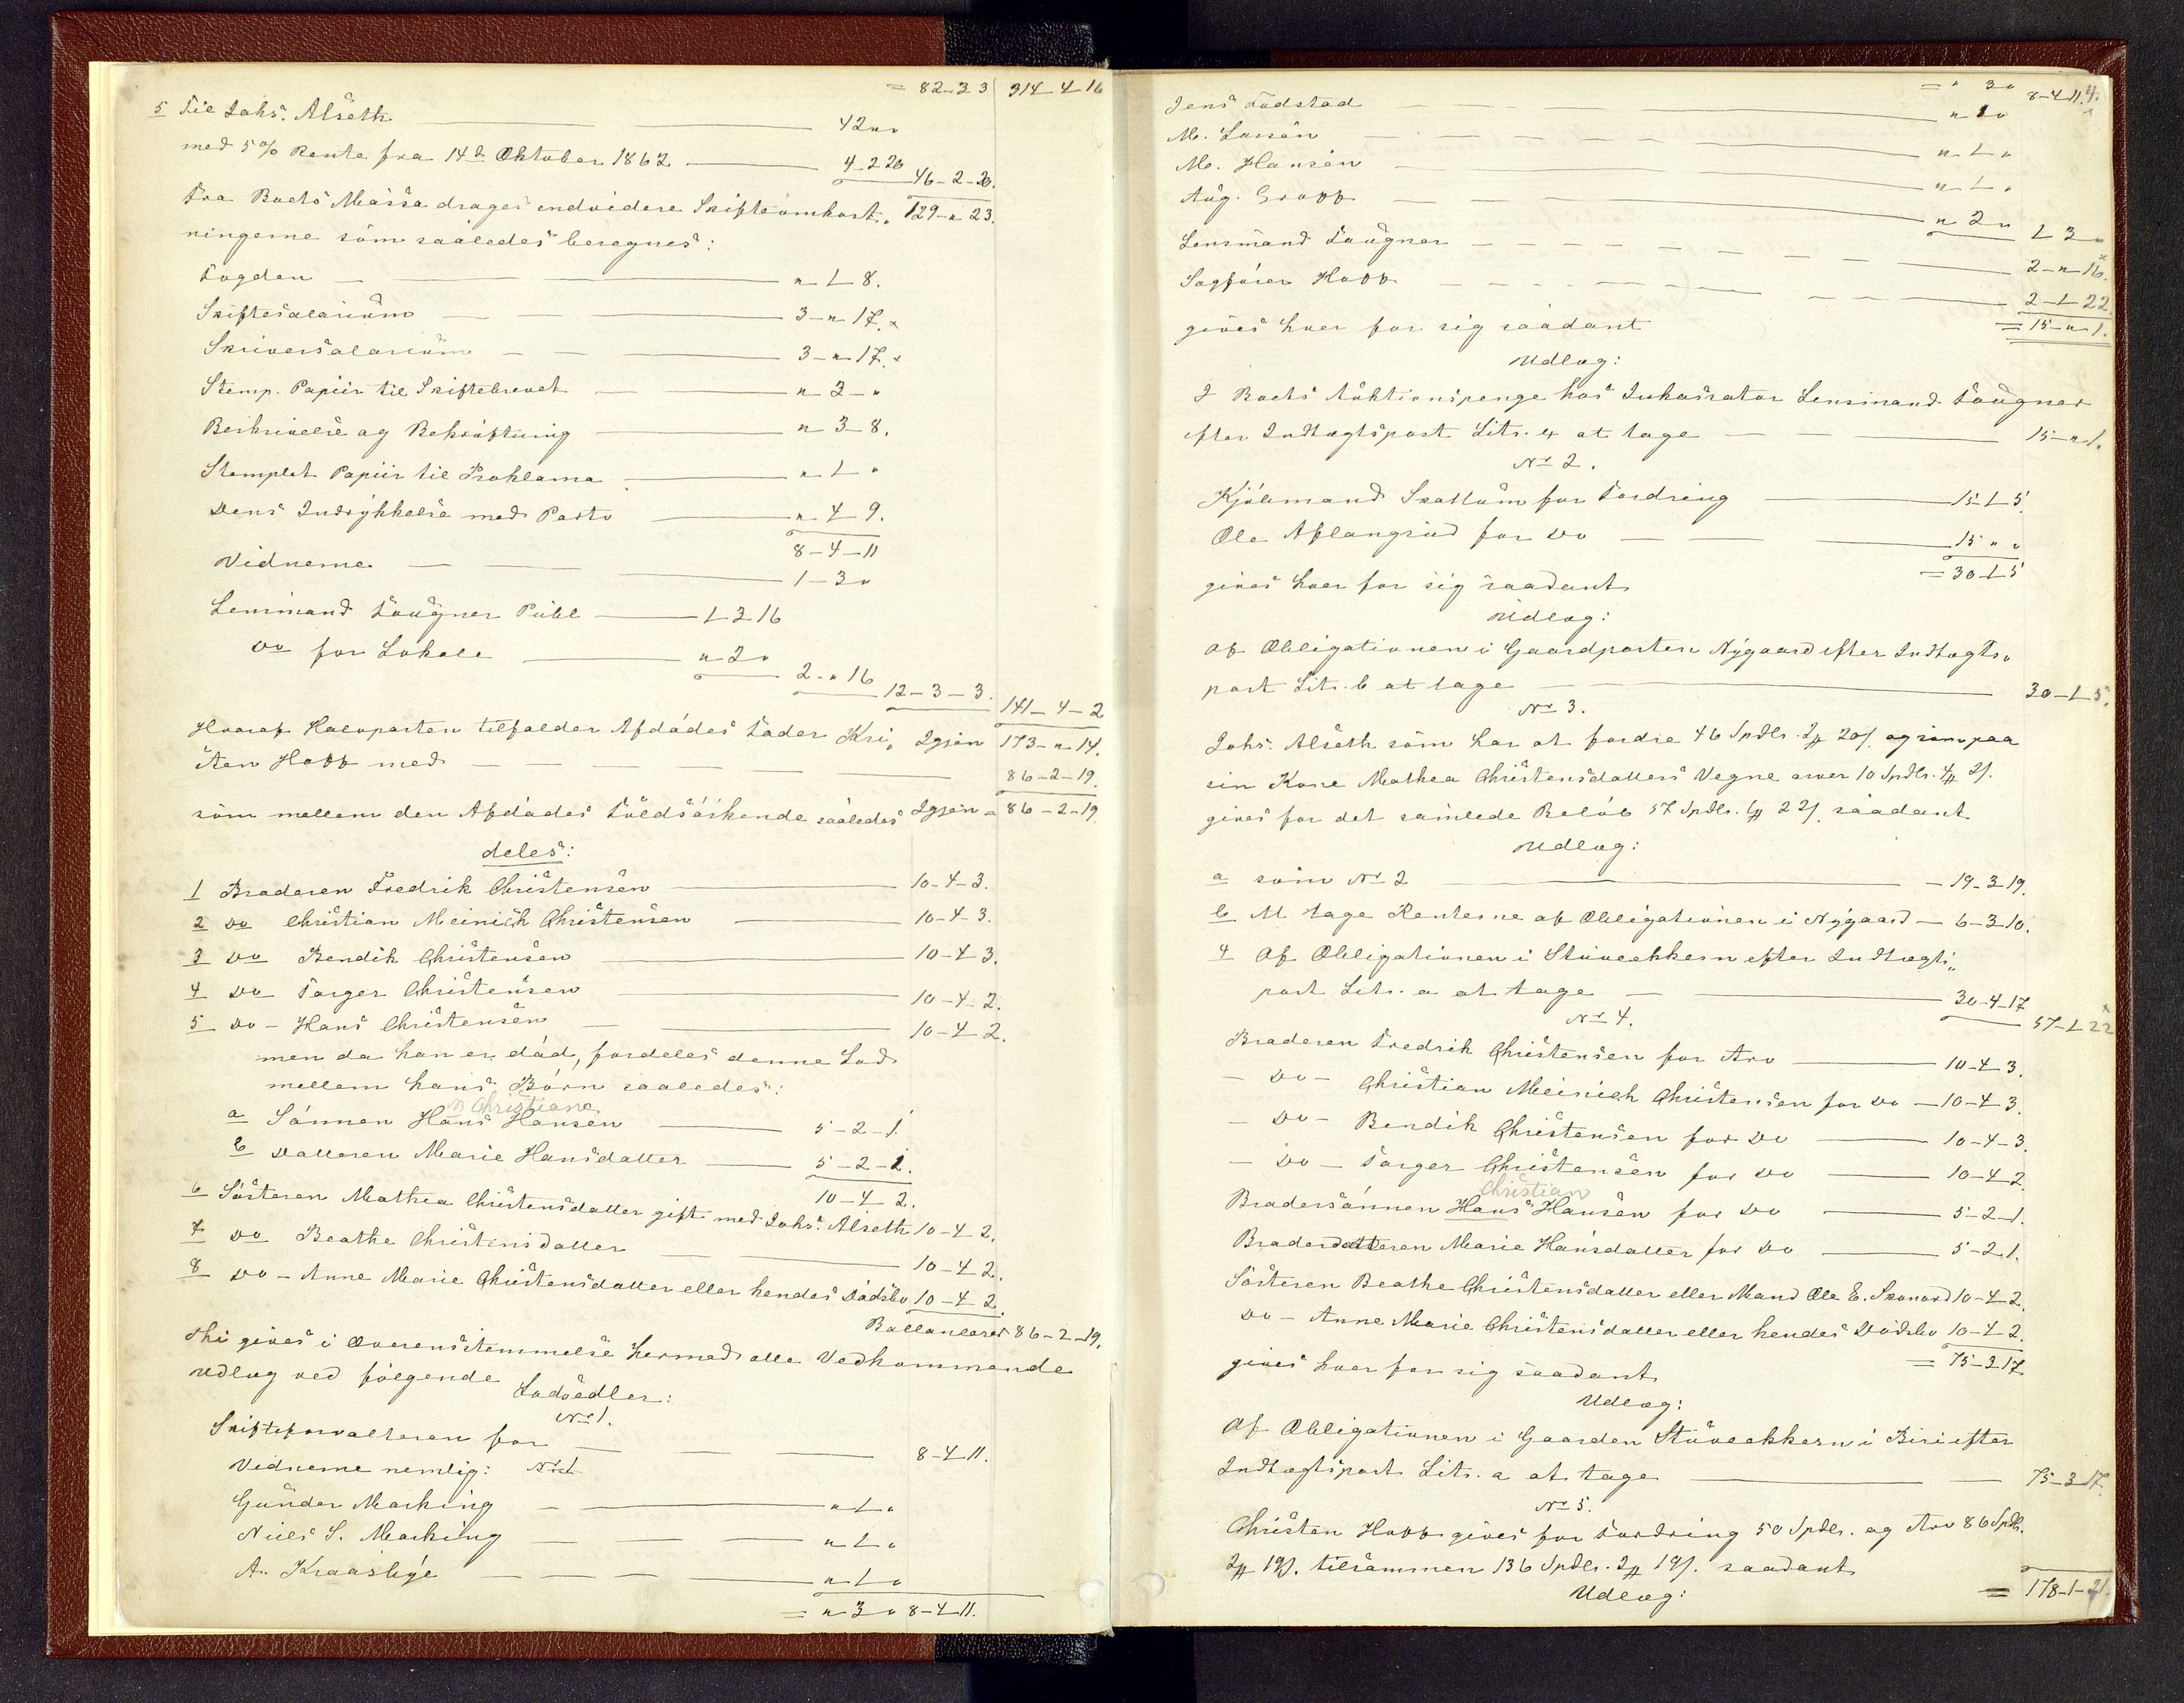 = 82-3 3 314-4-16
5 Til Johs. Alseth 42 " "
med 5% Rente fra 14d Oktober 1862 4-2 20
46-2-20.
Fra Boets Massa drages endvidere Skifteomkost- 129-"-23.
ningerne som saaledes beregnes:
Fogden " 1 8.
Skiftesalarium 3-"-17. x
Skriversalarium 3-"-17. x
Stemp. Papiir til Skiftebrevet " 2 - "
Beskrivelse og Bekræftning " 3 8.
Stemplet Papiir til Proklama " 1 "
Dens Indrykkelse med Porto " 4 9.
8-4-11
Vidnerne 1-3 "
Lensmand Fougner Publ 1 3 16
Do for Lokale " 2 "
2-" 16
12-3-3.
141-4-2
Hvoraf Halvparten tilfalder Afdødes Fader Kri- Igjen 173-"-14.
sten Hoff med 86-2-19.
som mellem den Afdødes Fuldsøskende saaledes Igjen = 86-2-19.
deles:
1 Broderen Fredrik Christensen 10-4-3.
2 Do Christian Meinich Christensen 10-4-3.
3 Do Bendik Christensen 10-4-3.
4 Do Torger Christensen 10-4-2.
5 Do - Hans Christensen 10-4-2.
men da han er død, fordeles denne Lod
mellem hans Børn saaledes:
Christiane
a Sønnen Hans Hansen 5-2-1.
b Datteren Marie Hansdatter 5-2-1.
10-4-2.
6 Søsteren Mathea Christensdatter gift med Johs. Alseth 10-4-2.
7 Do Beathe Christensdatter 10-4-2.
8 Do - Anne Marie Christensdatter eller hendes Dødsbo 10-4-2.
Ballancerer 86-2-19.
thi gives i Overensstemmelse hermed alle Vedkommende
Udlæg ved følgende
Lodsedler:
No 1.
Skifteforvalteren for 8-4-11.
Vidnerne nemlig: No 1
Gunder Marking " 1 "
Niels S. Marking " 1 "
A. Kraabye " 1 "
= " 3 " 8-4-11.
= " 3 " 8-4-11.
Jens Fødstad " 1 "
M. Larsen " 1 "
M. Hansen " 1 "
Aug. Gropp " 2 "
1 3 "
Lensmand Fougner 2-"-16.
Sagfører Hoff 2-1-22
gives hver for sig saadant = 15-"-1.
Udlæg:
I Boets Auktionspenge hos Inkassator Lensmand Fougner
efter Indtægtspost Litr. 4 at tage 15-"-1.
No 2.
Kjøbmand Skattum for Fordring 15-1-5.
Ole Aflangrud for Do 15 " "
= 30-1-5
gives hver for sig saadant
Udlæg:
Af Obligationen i Gaardparten Nygaard efter Indtægts-
post Litr. b at tage 30-1-5.
No 3.
Johs. Alseth som har at fordre 46 Spdlr. 2 ₰ 20/. og som paa
sin Kone Mathea Christensdatters Vegne arver 10 Spdlr. 4 ₰ 2/.
gives for det samlede Beløb 57 Spdlr. 1 ₰ 22/. saadant
Udlæg:
a som No 2 19-3-19.
b At tage Renterne af Obligationen i Nygaard - 6-3-10.
4 Af Obligationen i Stuveekkern efter Indtægts-
post Litr. a at tage 30-4-17
57-1-22
No 4.
Broderen Fredrik Christensen for Arv 10-4-3.
- Do - Christian Meinich Christensen for Do - 10-4-3.
- Do - Bendik Christensen for Do 10-4-3.
- Do - Torger Christensen for Do 10-4-2
Christian
Brodersønnen Hans Hansen for Do 5-2-1.
Broderdatteren Marie Hansdatter for Do 5-2-1.
Søsteren Beathe Christensdatter eller Mand Ole E. Skonord 10-4-2.
Do - Anne Marie Christensdatter eller hendes Dødsbo 10-4-2.
= 75-2-17
gives hver for sig saadant
Udlæg:
Af Obligationen i Gaarden Stuveekkern i Biri efter
Indtægtspost Litr. a at tage 75-2-17.
No 5.
Christen Hoff gives for Fordring 50 Spdlr. og Arv 86 Spdlr.
2 ₰ 19/. tilsammen 136 Spdlr. 2 ₰ 19/. saadant
Udlæg:
= 178-1-21.